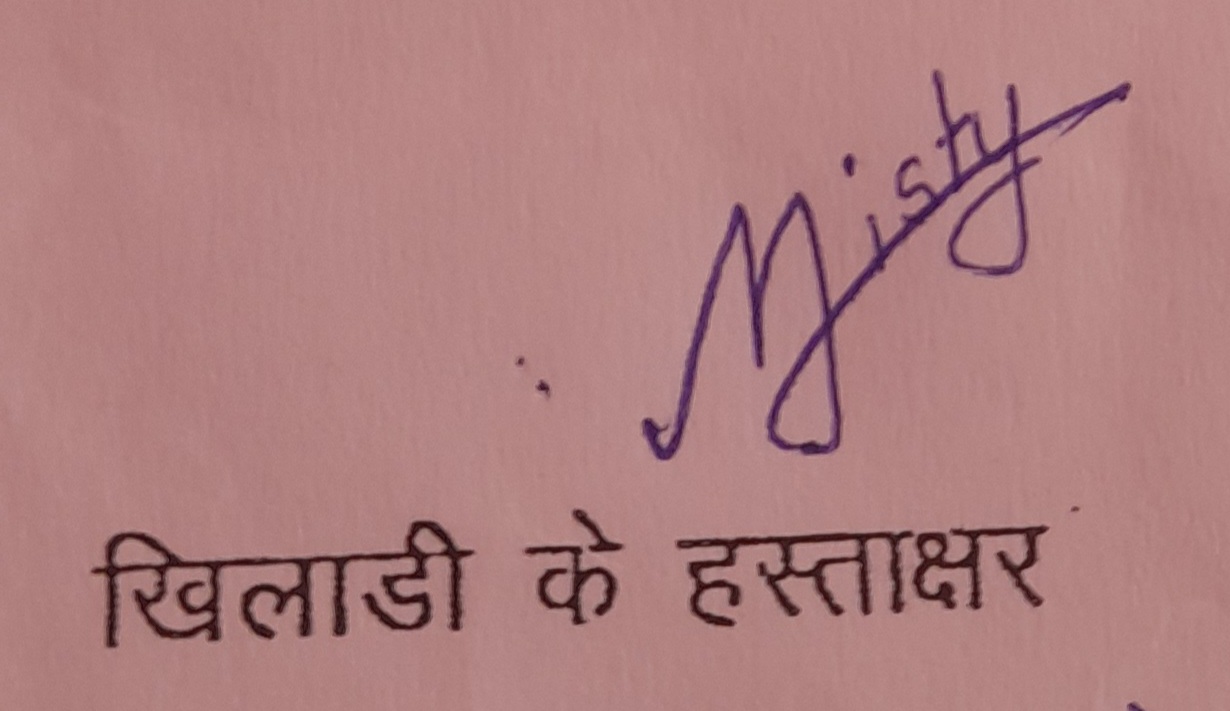 Misty
खिलाडी के हस्ताक्षर